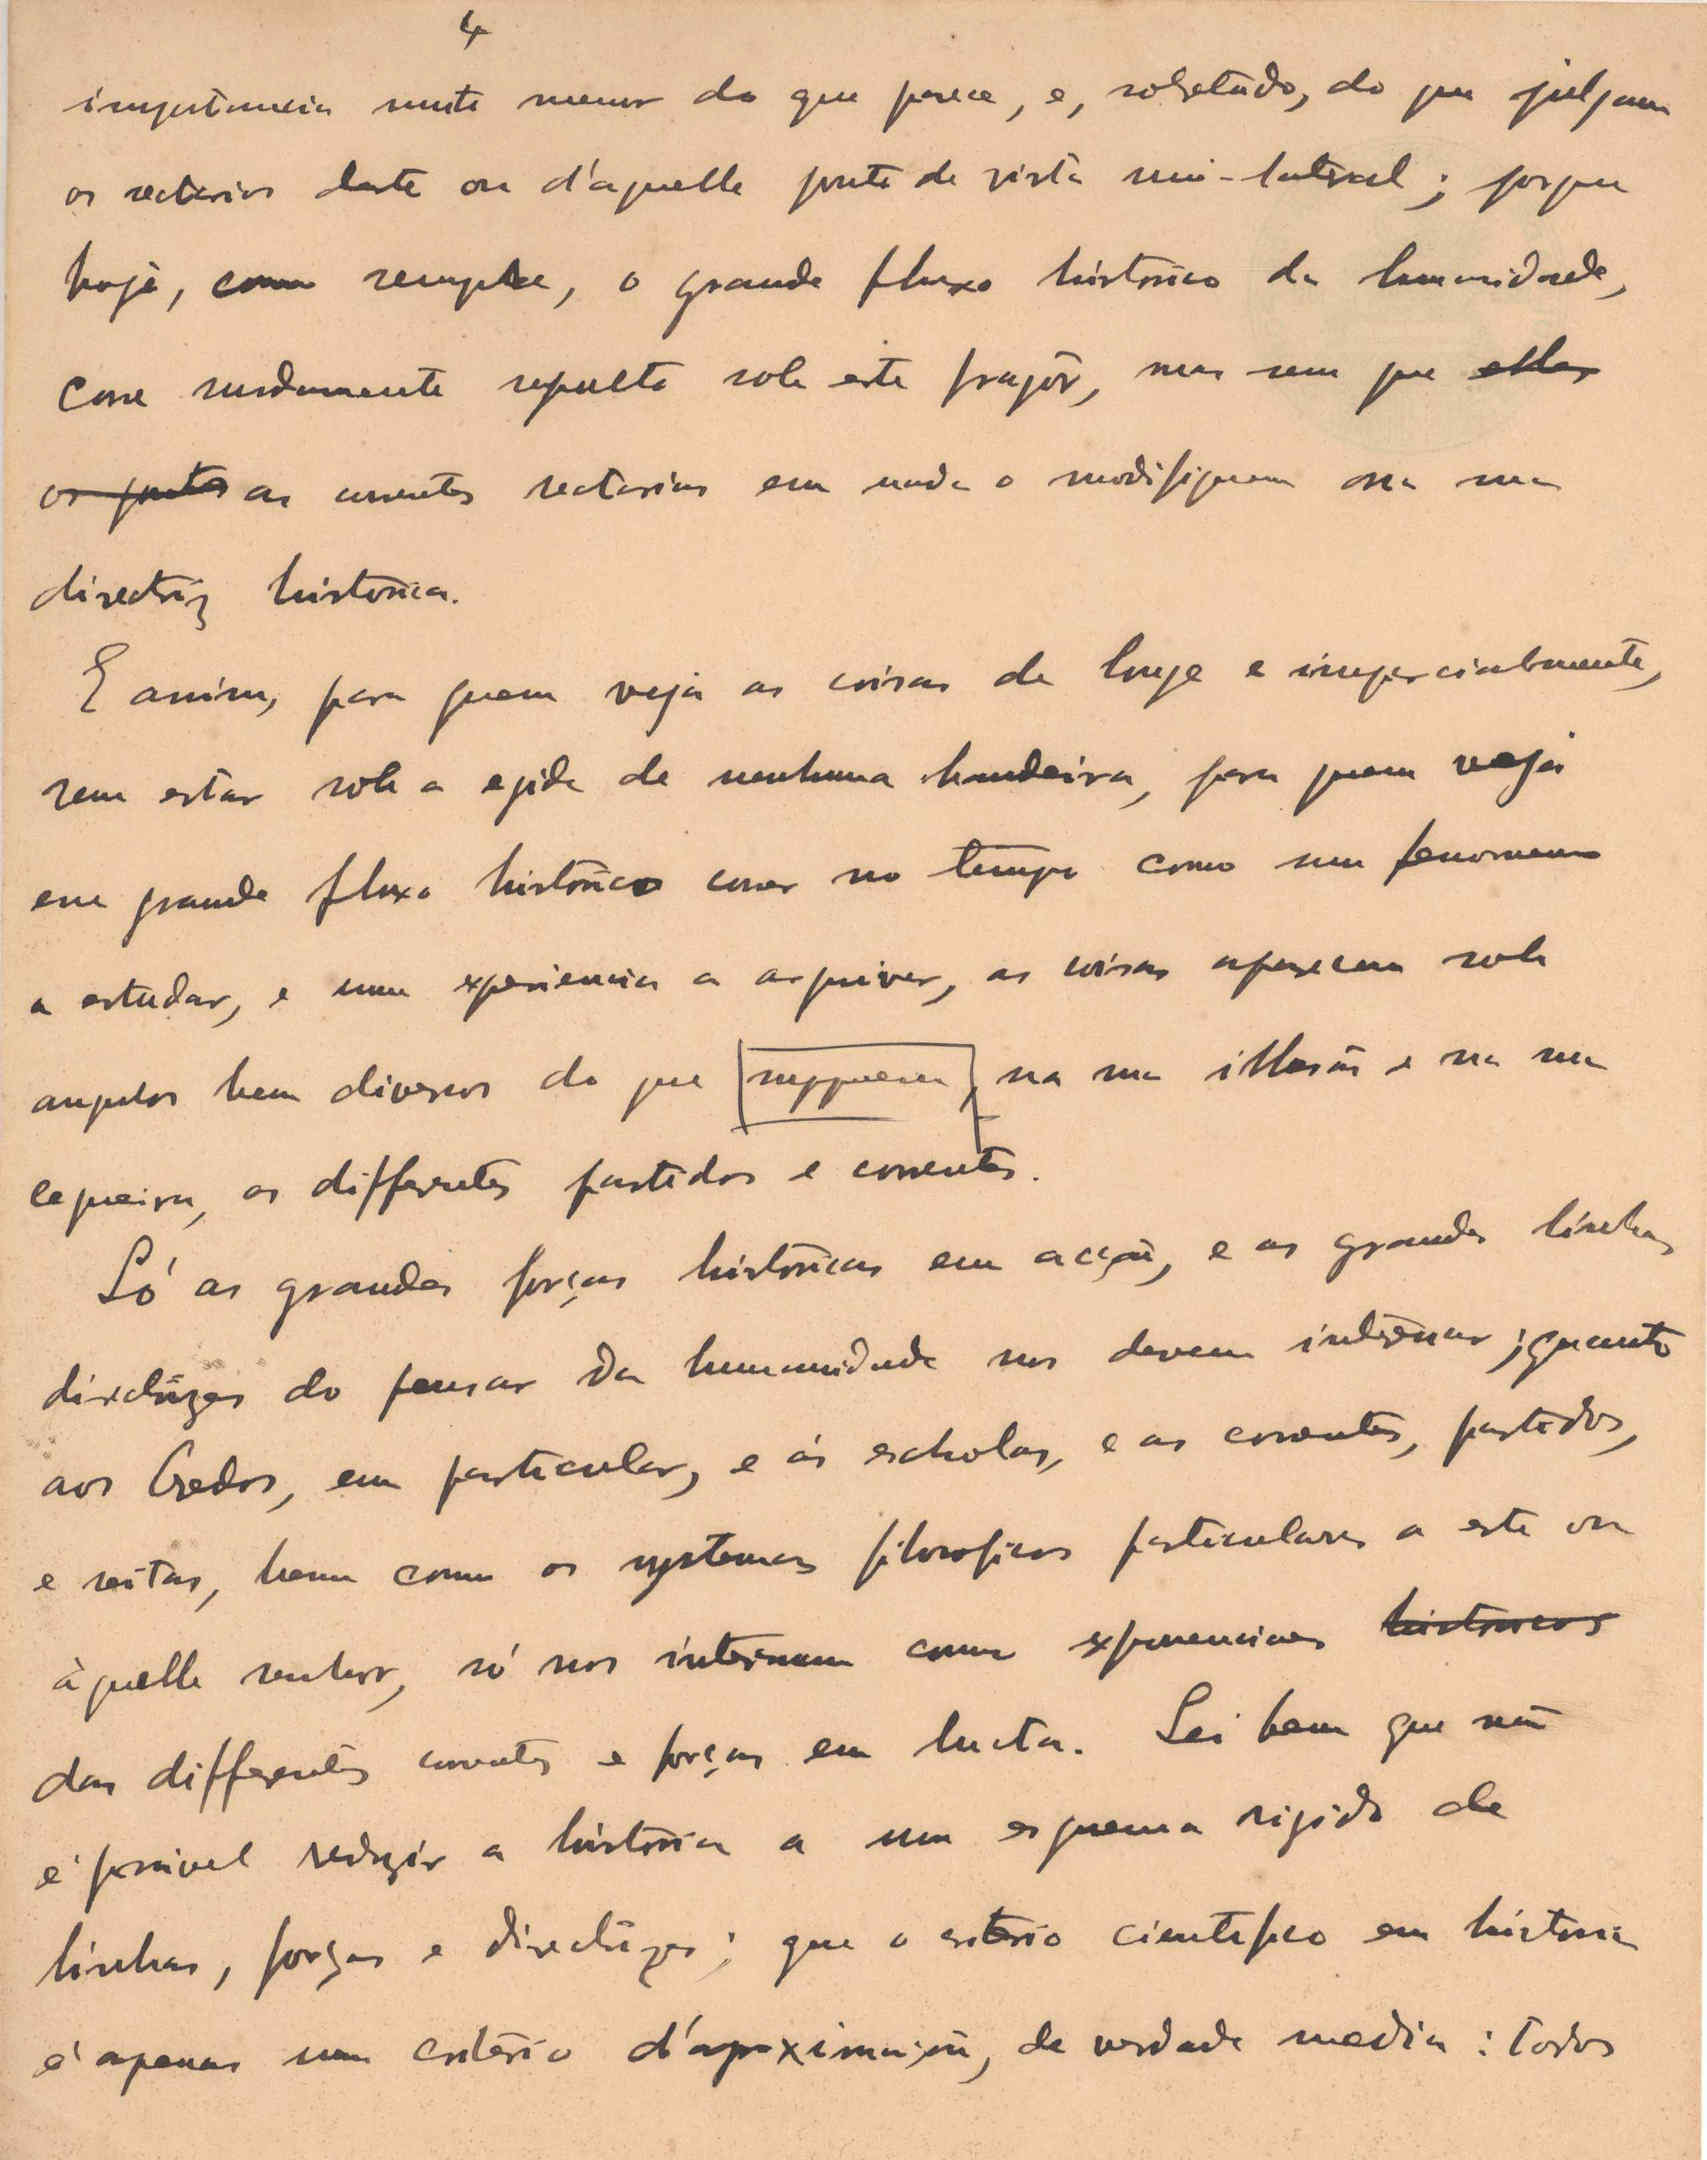 4
importancia muito menor do que parece, e, sobretudo, do que julgam
os sectarios deste ou d'aquelle ponto de vista uni-lateral; porque
hoje, como sempre, o grande fluxo historico da humanidade,
corre surdamente sepulto sob este fragôr, mas sem que ellas
os pontos as correntes sectarias em nada o modifiquem na sua
directriz historica.
E assim, para quem veja as coisas de longe e imparcialmente,
sem estar sob a egide de nenhuma bandeira, para quem veja
esse grande fluxo historico correr no tempo como um fenomeno
a estudar, e uma experiencia a arquivar, as coisas aparecem sob
angulos bem diversos do que suppoem, na sua illusão e na sua
cegueira, os differentes partidos e correntes.
Só as grandes forças históricas em acção, e as grandes linhas
directrizes do pensar da humanidade nos devem interessar; quanto
aos Credos, em particular, e ás escholas, e as correntes, partidos,
e seitas, bem como os systemas filosoficos particulares a este ou
àquelle senhor, só nos interessam como exponenciaes historicos
das differentes correntes e forças em lucta. Sei bem que não
é possivel reduzir a história a um esquema rigido de
linhas, forças e directrizes; que o criterio cientifico em historia
é apenas um critério d'aproximação, de verdade media: todos